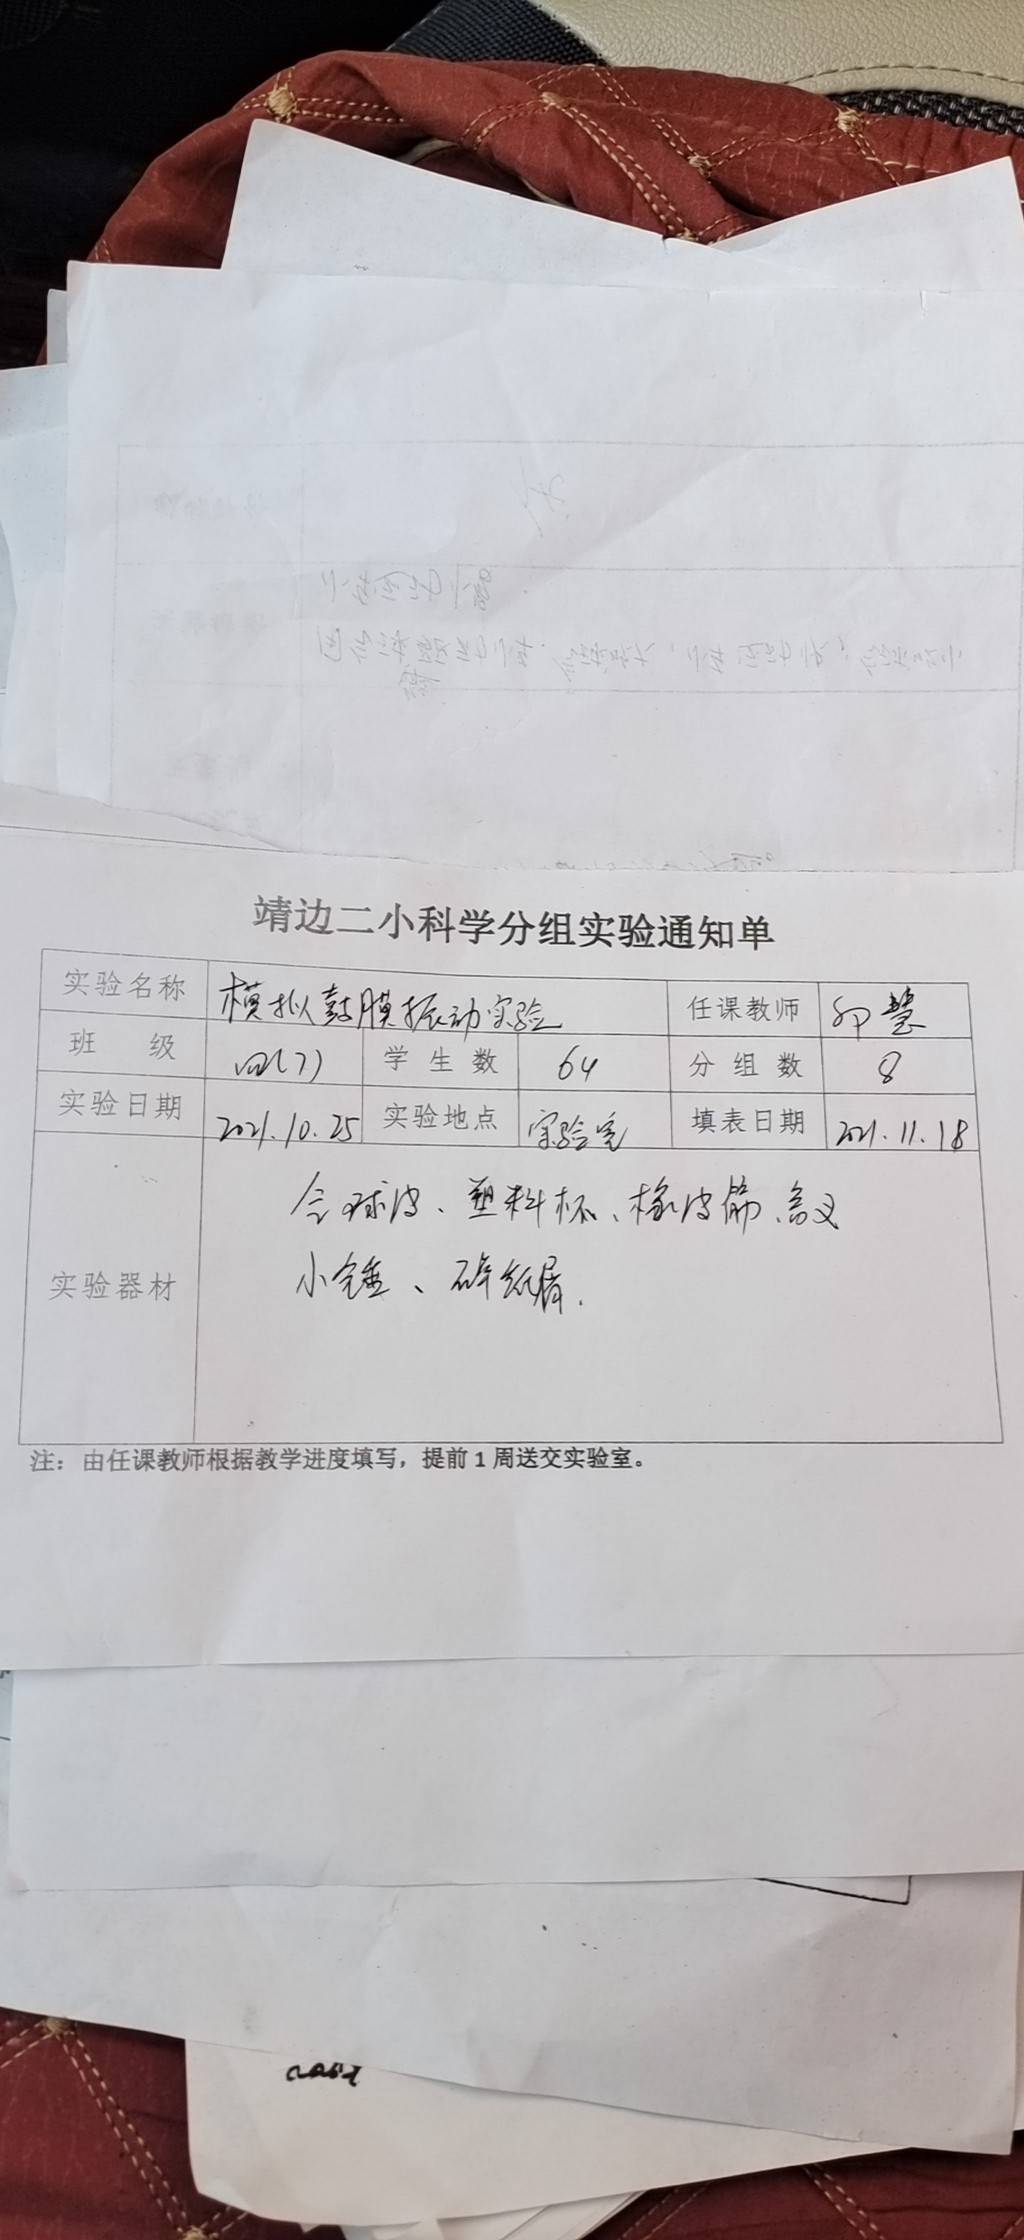 靖边二小科学分组实验通知单
实验名称 模拟鼓膜振动实验 任课教师 慧
班 级 四(7) 学 生 数 64 分 组 数 8
实验日期 2021.10.25 实验地点 实验室 填表日期 2021.11.18
实验器材 球皮、塑料杯、橡皮筋、音叉
小锤、碎纸屑.
注：由任课教师根据教学进度填写，提前1周送交实验室。